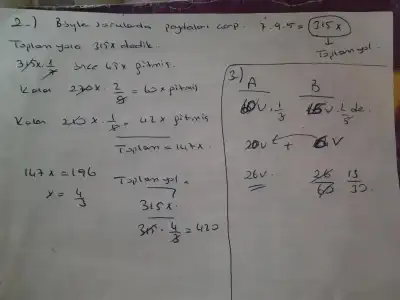 2-) Böyle sorularda paydaları çarp. 7.9.5 = 315x
Toplam yola 315x dedik.
Toplam yol.
315x . 1/7 önce 45x gitmiş.
Kalan 270x . 2/9 = 60x gitmiş
Kalan 210x . 1/5 = 42x gitmiş
Toplam = 147x.
147x = 196
x = 4/3
Toplam yol.
315x
315 . 4/3 = 420
3.)
A B
60V . 1/3 15V . 2/5 de.
20V + 6V
26V. 26/60 13/30